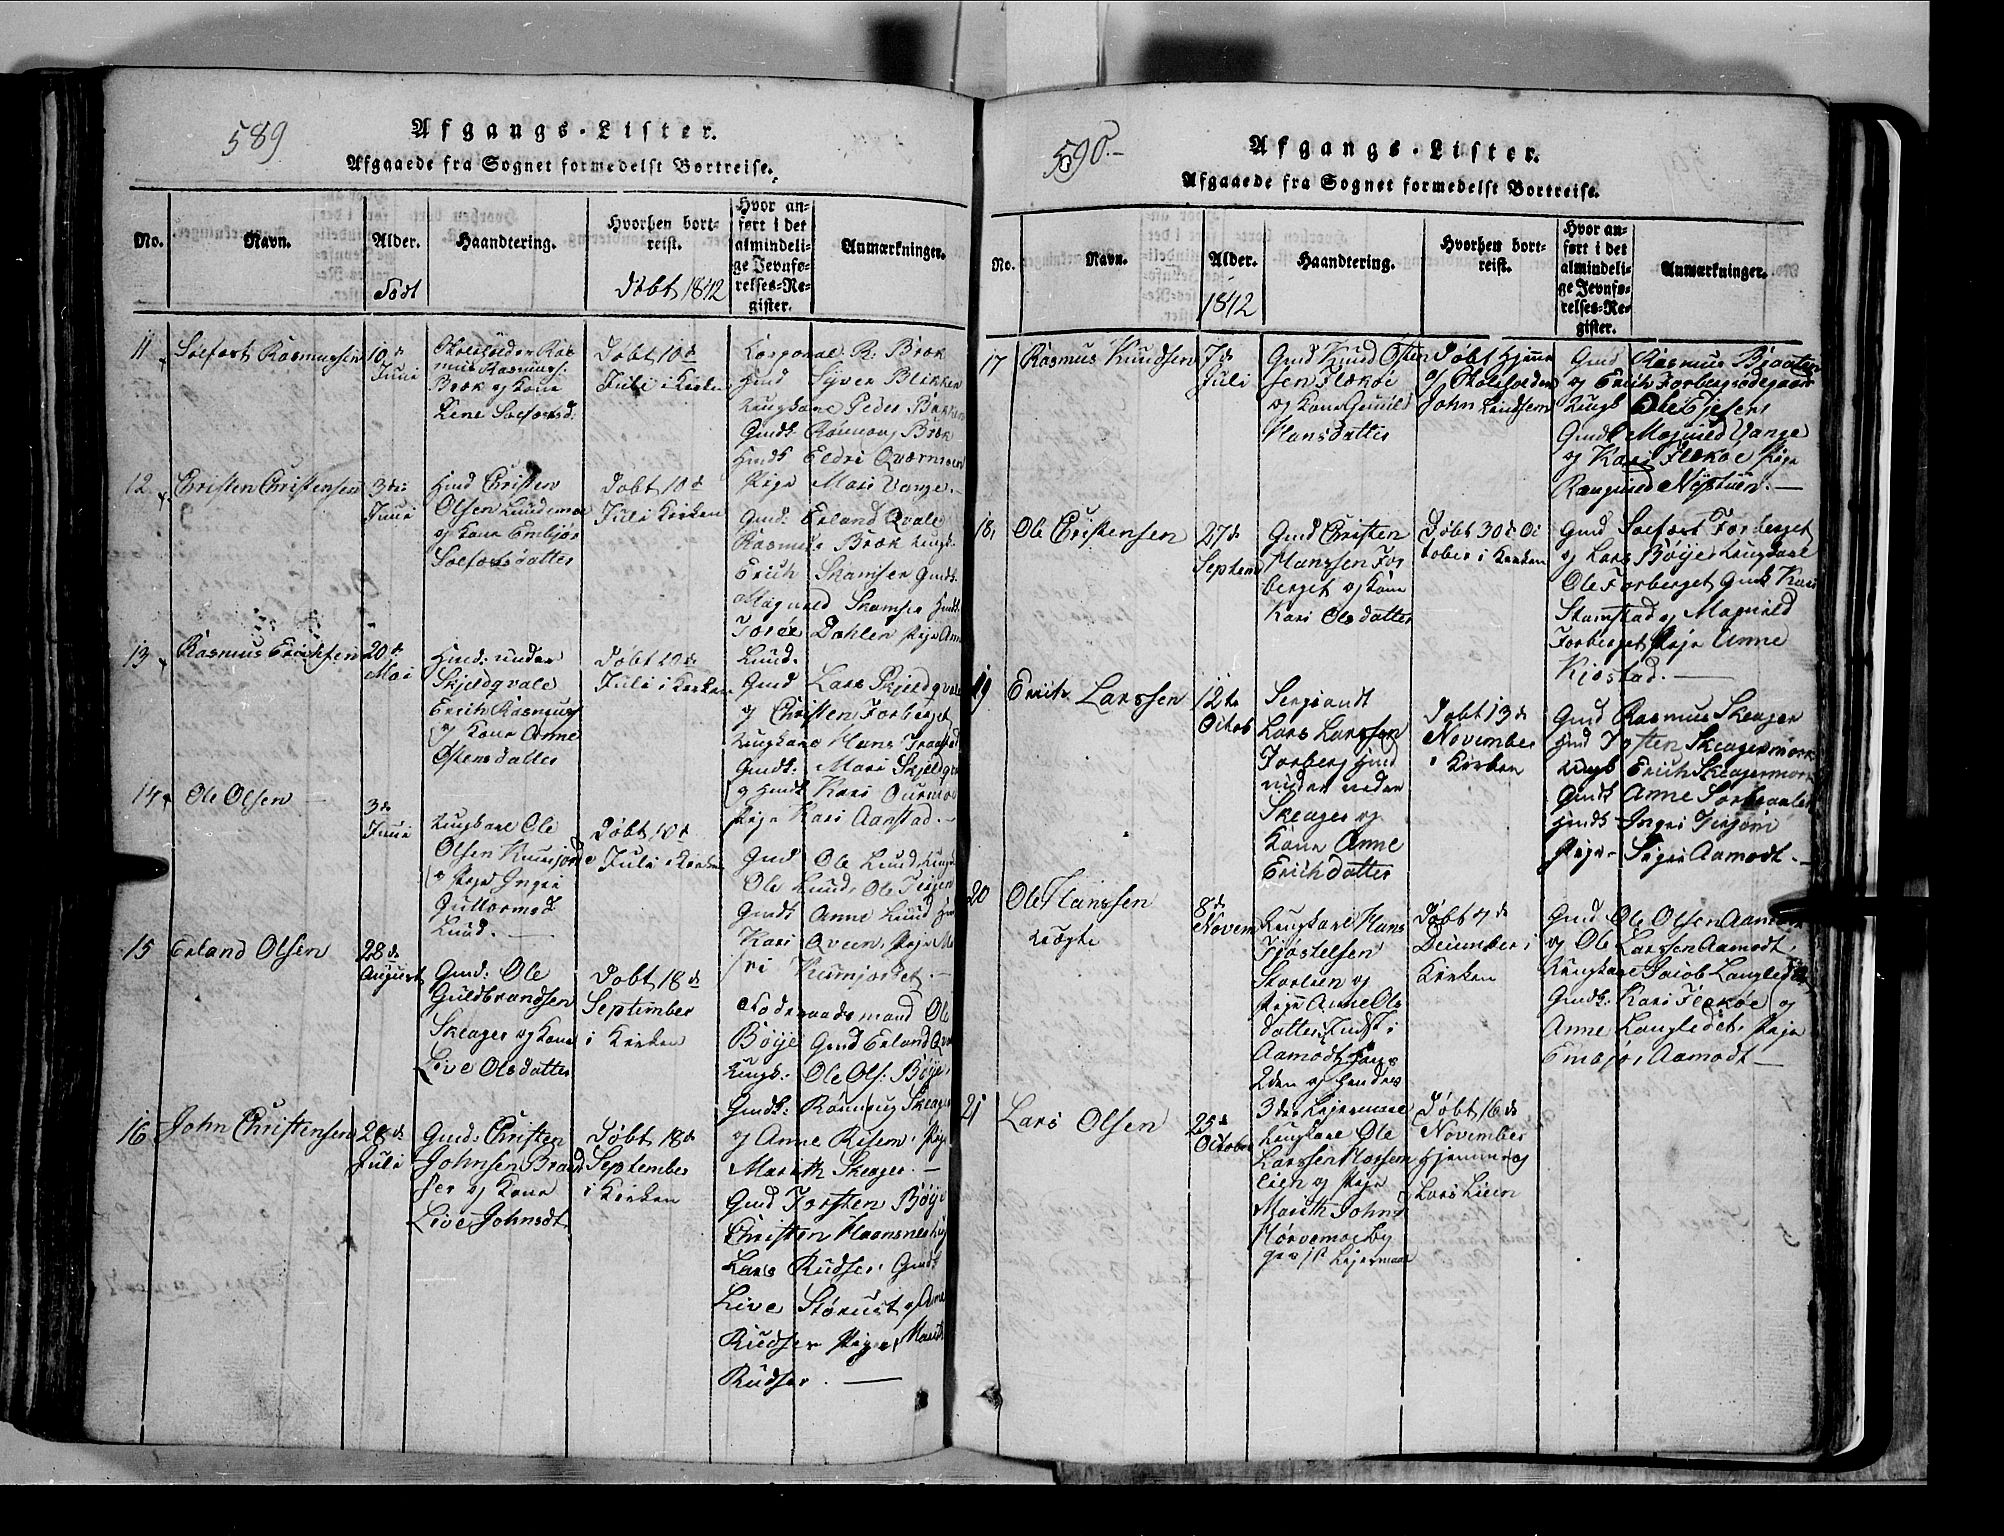 589
Afgangs-Lister.
Afgaaede fra Sognet formedelst Bortreise.
No.
Navn.
Alder.
Haandtering.
Hvorhen bort-
reist.
Hvor an-
ført i det
almindeli-
ge Jevnfø-
relses-Re-
gister.
Anmærkninger.
Født
Døbt 1842
11
Solfart Rasmussen
10de
Juni
Skoleholder Ras
mus Rasmuss:
Bræk og Kone
Lene Solfarsd:
Døbt 10de
Juli i Kirken
Korporal R: Bræk
Hmd Syver Blikker
Ungkare Peder Bakken
Gmdk Rønnoug Bræk
Hmdk Eldri Qværnmoen
Pige Mari Vange.
12
Christen Christensen
3die
Juni
Hmd Christen
Olsen Lundemoe
og Kone Embjør
Solfarsdatter
Døbt 10de
Juli i Kirken
Gmd: Erland Qvale
Rasmus Bræk Ungk:
Erich Skamser Gmdk:
Magnild Skamser Hmdk
Dahlen Pige Anne
Lund.
13
Rasmus Erichsen
20de
Mai
Hmd: under
Skjeldqvale
Erich Rasmuss
og Kone Anne
Østensdatter
Døbt 10de
Juli i Kirken
Gmd Lars Skjeldqvale
og Christen Forberget
Ungkare Hans
Gmdk: Mari Skjeldqv
og Hmdk Kari
Pige Kari Aanstad.
14
Ole Olsen
3de
Juni
Ungkare Ole
Olsen
og Pige Ingri
Guttormsd
Lund.
Døbt 10de
Juli i Kirken
Gmd Ole Lund Ungk
Ole Lund, Ole
Gmdk Anne Lund
Kari Qveen, Pige Ma
ri
15
Erland Olsen
28de
August
Gmd: Ole
Guldbrandsen
Skeager og Kone
Live Olsdatter
Døbt 18de
September
i Kirken
Foderaadsmand Ole
Bøye Gmd Erland Qva
Ungk: Ole Ols: Bøye,
Gmdk: Rønnoug Skeager
og Anne Risem, Pige
Marith Skeager.
16
John Christensen
28de
Juli
Gmd: Christen
Johnsen
og Kone
Live Johnsdt
Døbt 18de
September
i Kirken
Gmd Torsten Bøye
Christen
Lars Rudser. Gmdk
Live Størust og Anne
Rudser Pige Marith
Rudser.
590.
Afgangs-Lister.
Afgaaede fra Sognet formedelst Bortreise.
No.
Navn.
Alder.
Haandtering.
Hvorhen bort-
reist.
Hvor an-
ført i det
almindeli-
ge Jevnfø-
relses-Re-
gister.
Anmærkninger.
1842
17
Rasmus Knudsen
7de
Juli
Gmd Knud Østen
sen Flækøi
og Kone Gunild
Hansdatter
Døbt Hjemme
af Skoleholder
John Lindsem
Gmd Rasmus Braaten
og Erich Forbergsødegaard
Ungk Ole
Gmdk Magnild Vange
og Kari Flækøe Pige
Rangnild Nystuen.
18
Ole Cristensen
27de
Septem
Gmd Christen
Hanssen For
berget og Kone
Kari Olsdatter
Døbt 30de Oc
tober i Kirken
Gmd Solfart Forberget
og Lars Bøye Ungkare
Ole Forberget Gmdk Kari
Stamstad og Magnild
Forberget Pige Anne
Kjøstad.
19
Erich Larssen
12te
Octob
Sergeandt
Lars Larssen
Forberg Hmd
under
Skeager og
Kone Anne
Erichdatter
Døbt 13de
November
i Kirken
Gmd Rasmus Skeager
Hmd Østen Skeagermork
Ungk Erich Skeagermork
Gmdk Anne
Hmdk Ingri
Pige Sigri Aamodt.
20
Ole Hanssen
8de
Novem
Ungkare Hans
Tjøstelsen
Storlien og
Pige Anne Ols
datter Indst i
Aamodt
2den og hendes
3die Lejermaal
Døbt 7de
December i
Kirken
Gmd Ole Olsen Aamodt
og Ole Larssen Aamodt,
Ungkare Jacob Langledet
Gmdk: Kari Flækøe og
Anne Langledet, Pige
Embjør Aamodt
21
Lars Olsen
25de
October
Ungkare Ole
Larssen
lien og Pige
Marith Johns
Hørvemoe
Lejermaal
Døbt 16de
November
Hjemme af
Lars Lien